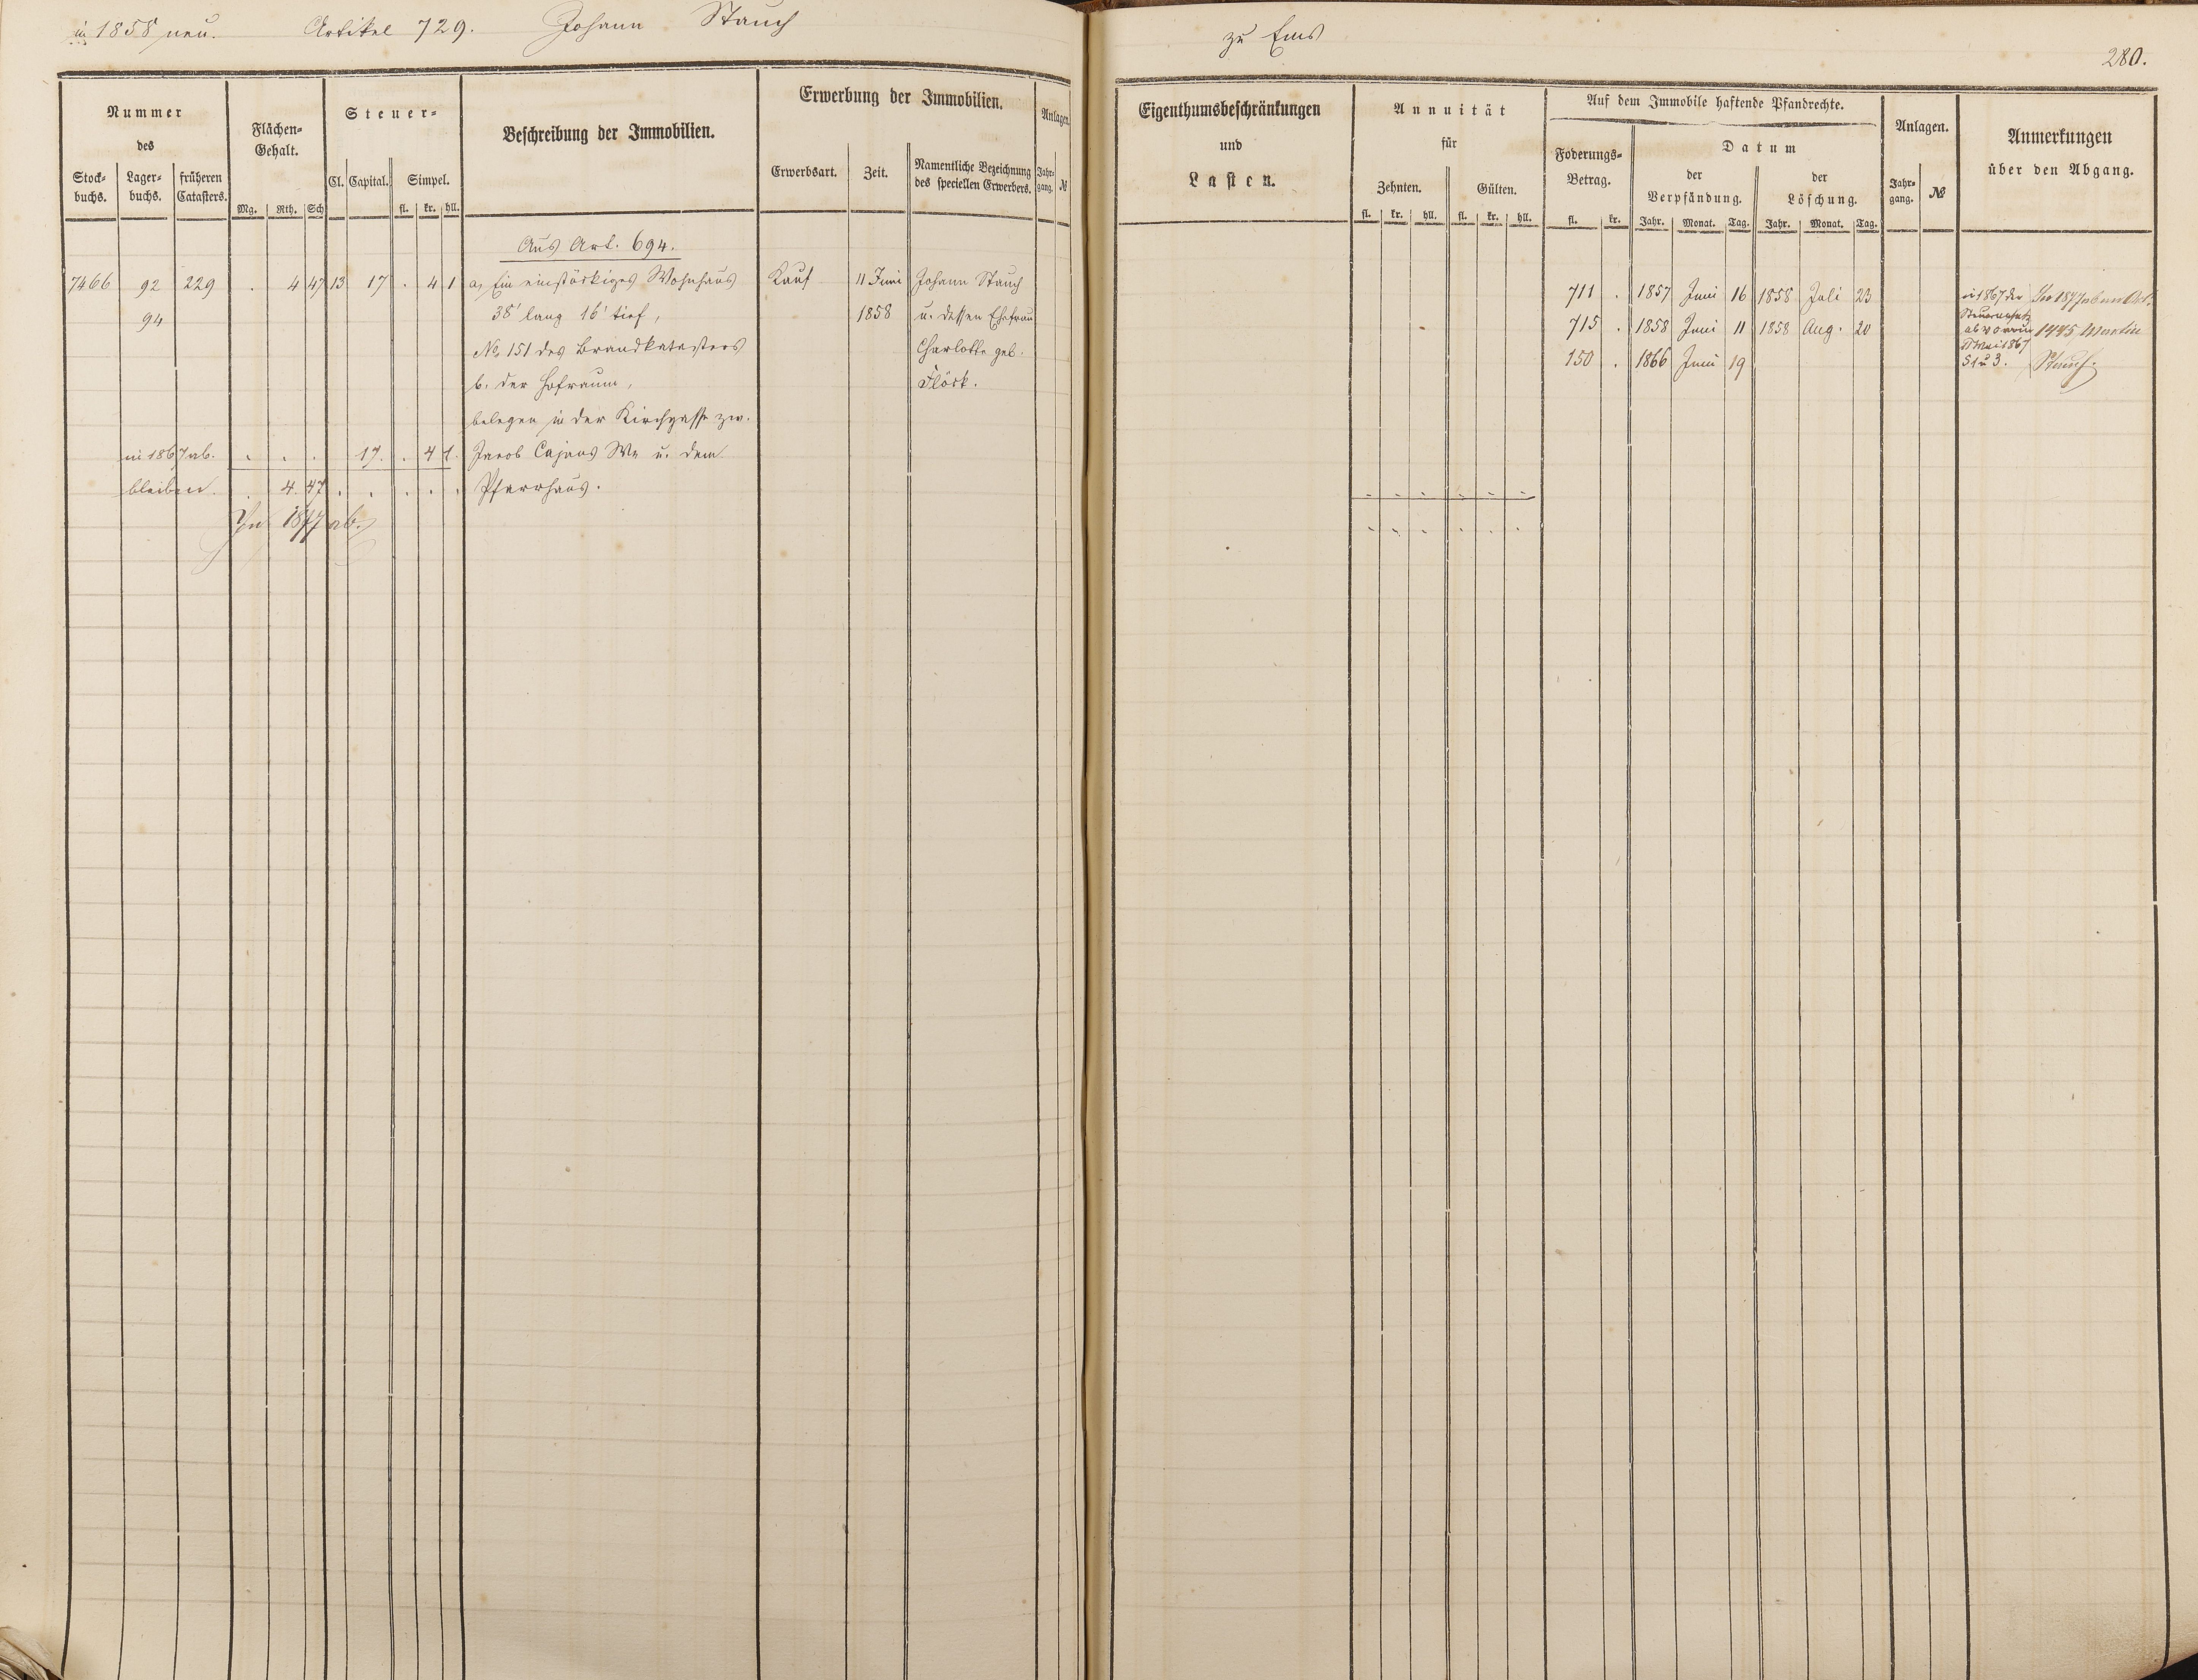 in 1858 neu. Artikel 729. Johann Stauch
zu Ems
280.
Nummer
des
Stock-
buchs.
Lager-
buchs.
früheren
Catasters.
Flächen-
Gehalt.
Mg. Rth. Sch
Steuer-
Cl. Capital. Simpel.
fl. kr. hll.
Beschreibung der Immobilien.
Erwerbung der Immobilien.
Erwerbsart. Zeit.
Namentliche Bezeichnung
des speciellen Erwerbers.
Anlagen.
Jahr-
gang. №
Eigenthumsbeschränkungen
und
Lasten.
Annuität
für
Zehnten. Gülten.
fl. kr. hll. fl. kr. hll.
Auf dem Immobile haftende Pfandrechte.
Föderungs-
Betrag.
fl. kr.
Datum
der
Verpfändung.
Jahr. Monat. Tag.
der
Löschung.
Jahr. Monat. Tag.
Anlagen.
Jahr-
gang. №
Anmerkungen
über den Abgang.
Aus Art. 694.
7466 92 229 . 4 47 13 17 . 4 1 a, Ein einstöckiges Wohnhaus Kauf 11 Juni Johann Stauch
94 38' lang 16' tief, 1858 u. dessen Ehefrau
№ 151 des Brandkatasters Charlotte geb.
b. der Hofraum, Flöck.
belegen in der Kirchgasse zw.
in 1867 ab. . . . 17. . 4 1. Jacob Cajans We u. dem
bleiben. . 4. 47 . . . . . Pfarrhaus.
In 1877 ab.
711 . 1857 Juni 16 1858 Juli 23
715 . 1858 Juni 11 1858 Aug. 20
150 . 1866 Juni 19
in 1867 der
ab
Mai 1867
S 1 u 3.
In 1877 ab an Art.
1445 Martin
Stauch.